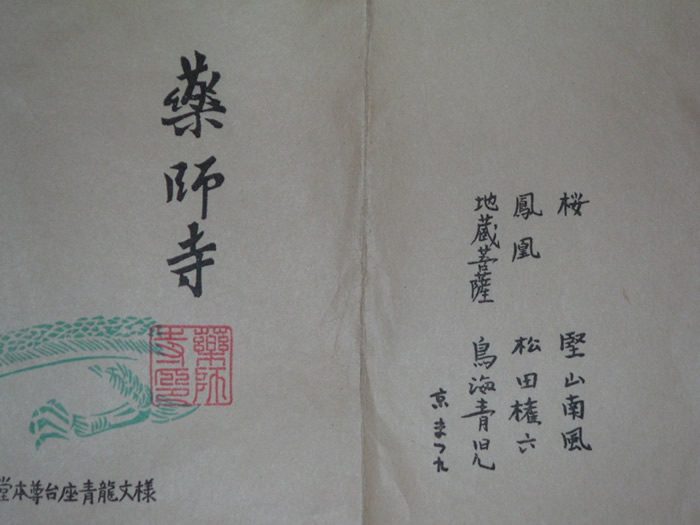 桜　堅山南風
鳳凰　松田権六
地蔵菩薩　鳥海青児
京まつ九
薬師寺
薬師寺印
堂本尊台座青龍文様